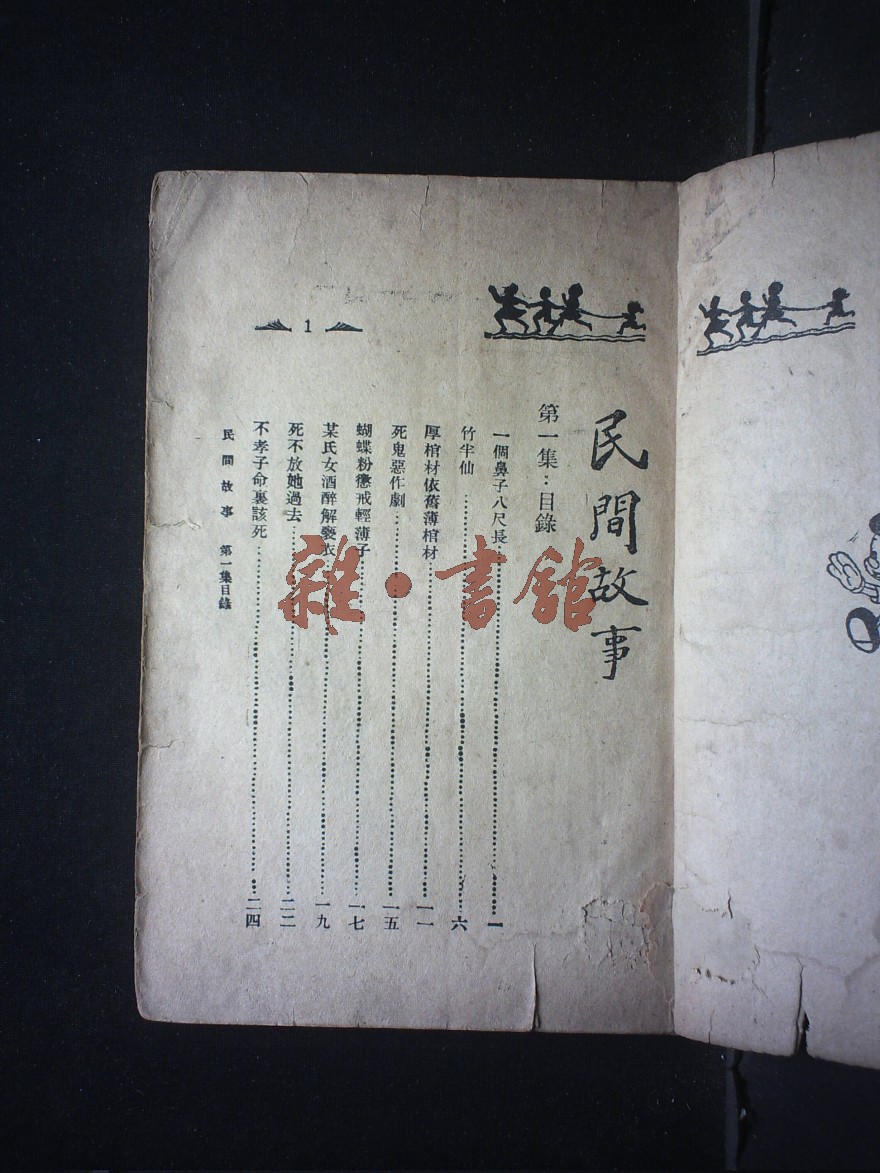 民間故事
第一集：目錄
一個鼻子八尺長……一
竹半仙……六
厚棺材依舊薄棺材……一一
死鬼惡作劇……一五
蝴蝶粉懲戒輕薄子……一七
某氏女酒醉解褻衣……一九
死不放她過去……二二
不孝子命裏該死……二四
民間故事 第一集目錄
1
雜·書館